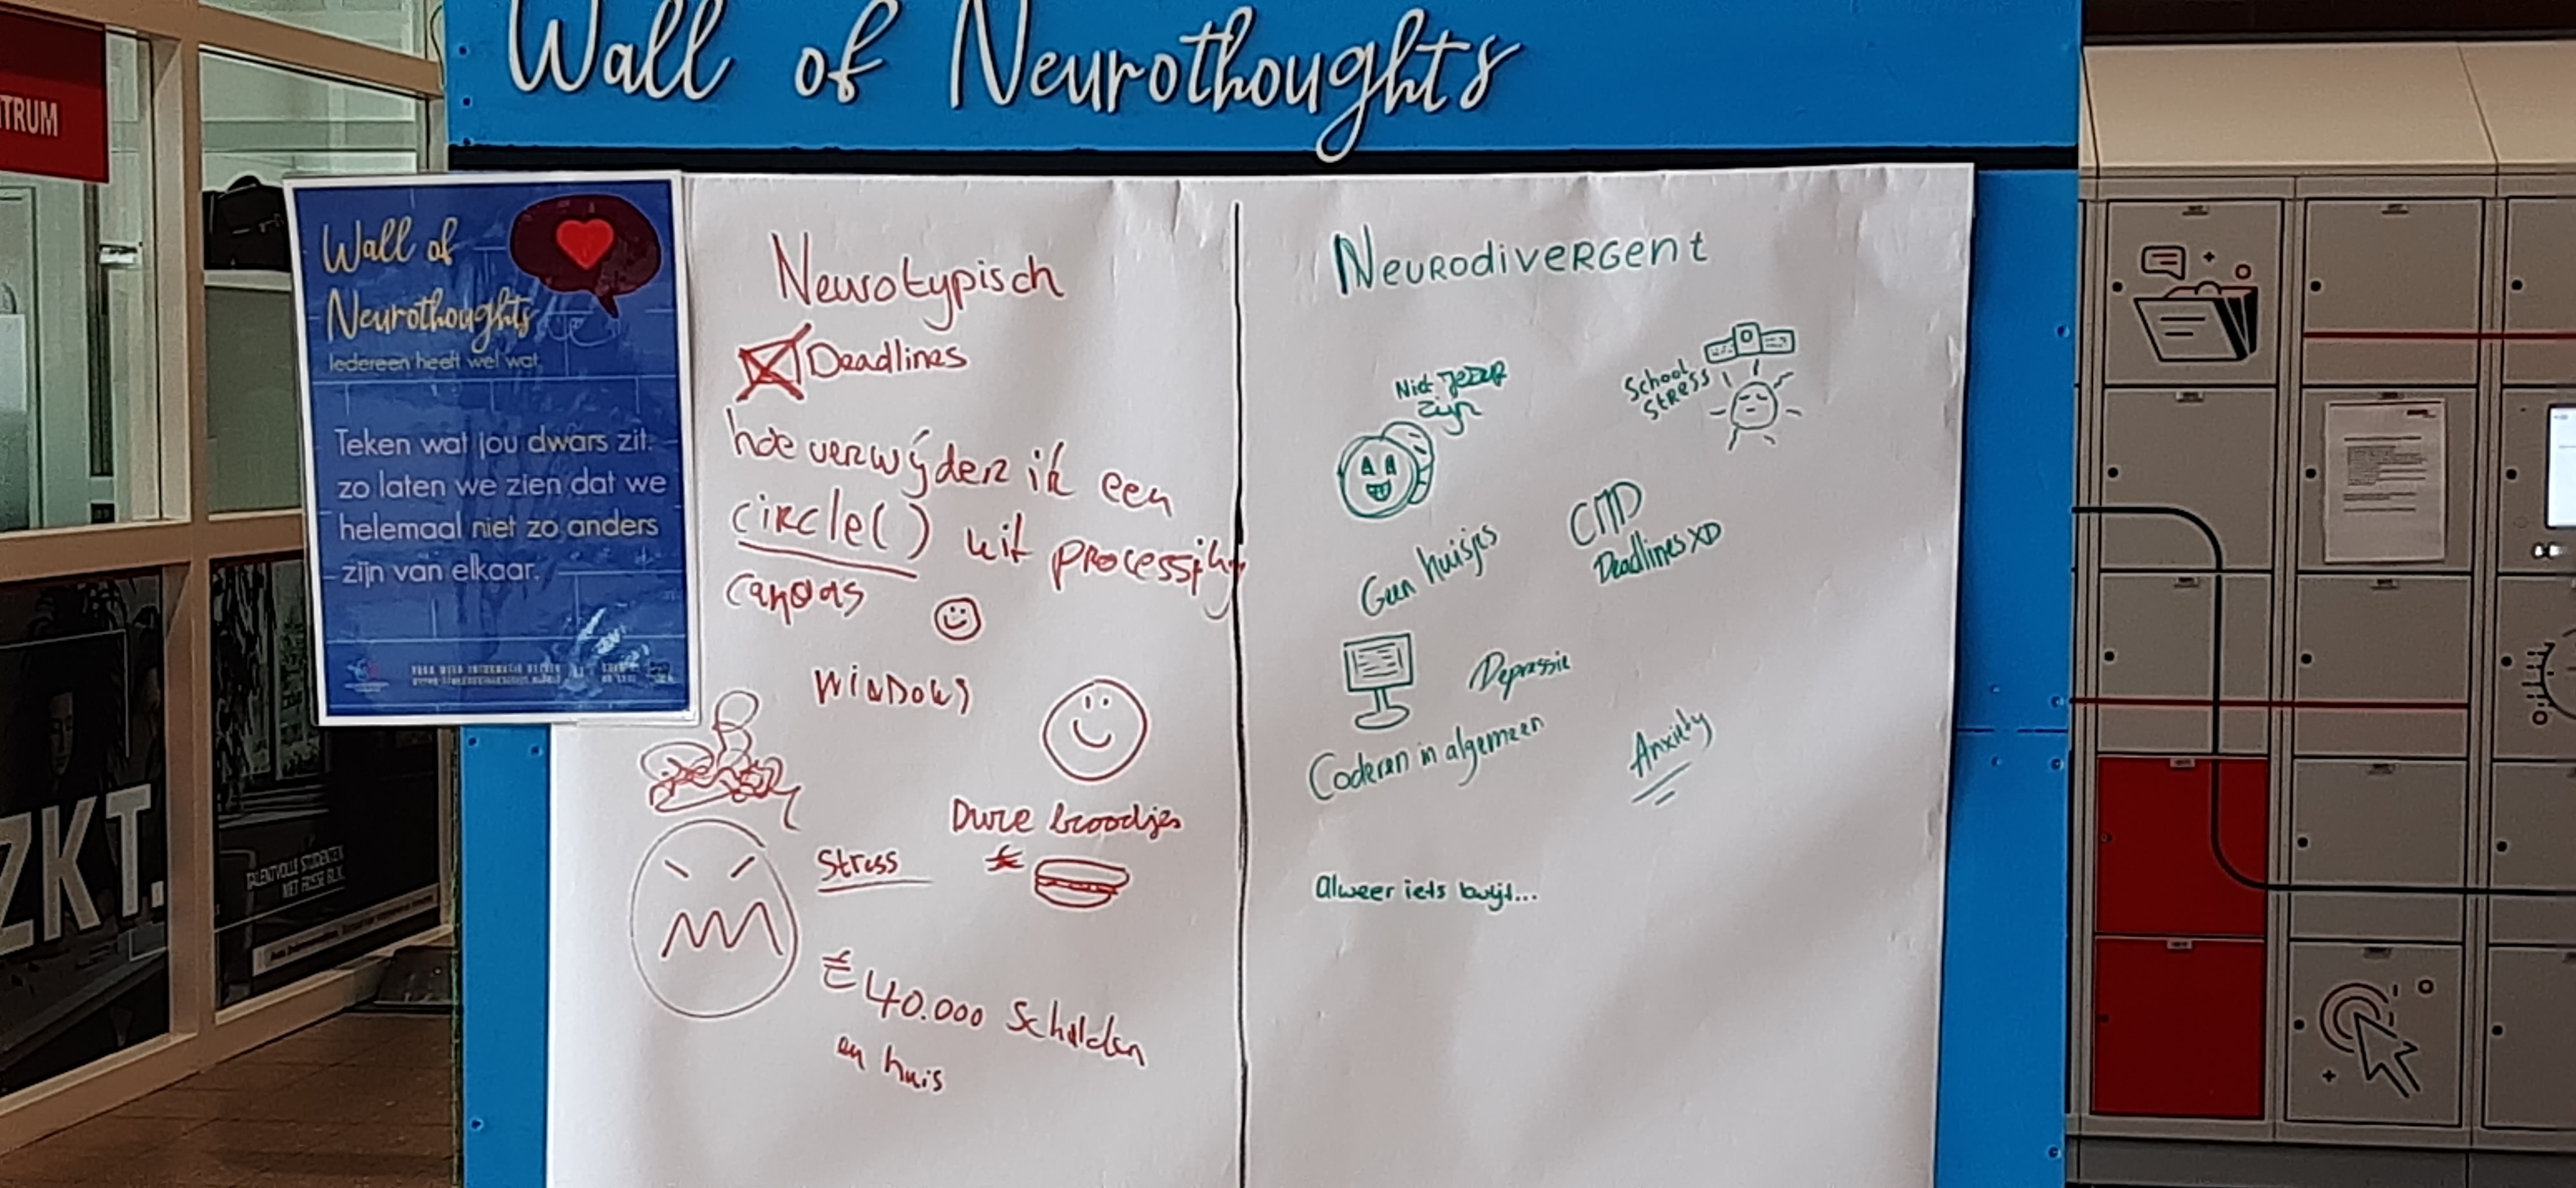 Wall of Neurothoughts
TRUM
Wall of
Neurothoughts
Iedereen heeft wel wat.
Teken wat jou dwars zit.
zo laten we zien dat we
helemaal niet zo anders
zijn van elkaar.
Neurotypisch
Deadlines
hoe verwijder ik een
circle() uit processing
canvas
Windows
Dure broodjes
Stress
€40.000 Schulden
en huis
Neurodivergent
Niet jezelf
zijn
School
Stress
CMD
Deadlines XD
Geen huisjes
Depressie
Coderen in algemeen
Anxiety
Alweer iets kwijt...
ZKT.
TALENTVOLLE STUDENTEN